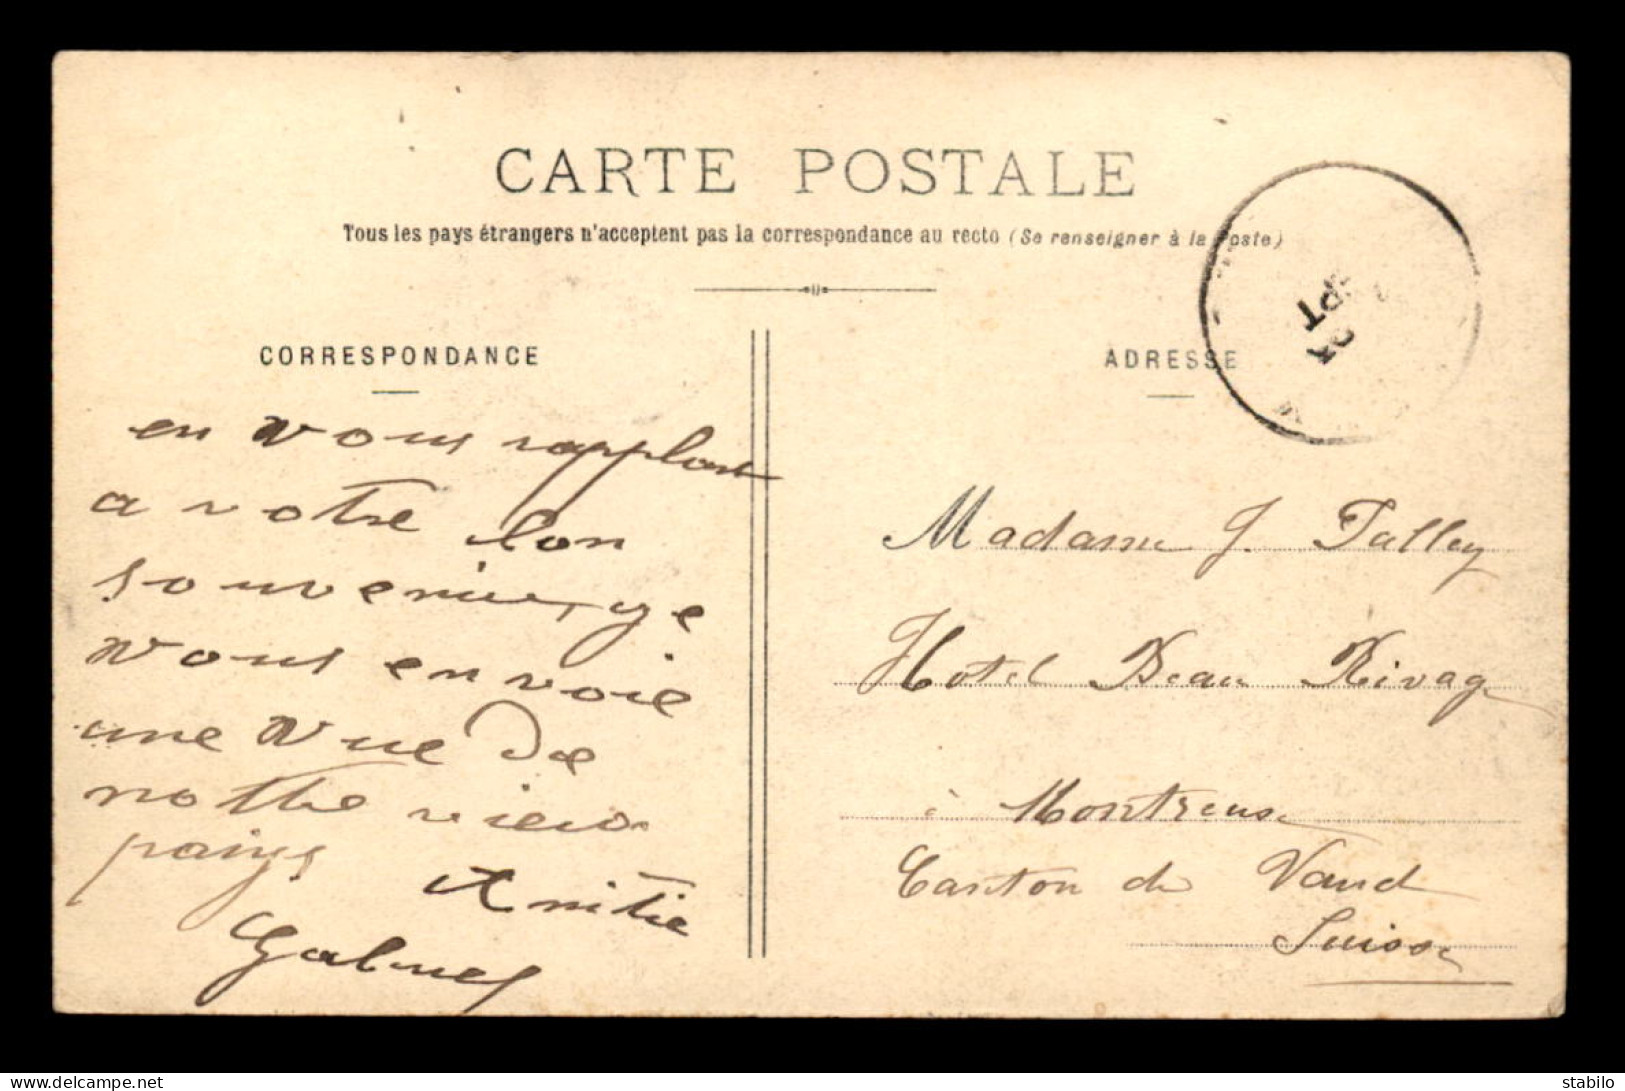 CARTE POSTALE
Tous les pays étrangers n'acceptent pas la correspondance au recto (Se renseigner à la Poste)
CORRESPONDANCE
en vous rapplant
a votre bon
souvenir, ge
vous envoie
une vue de
notre vieux
pays
Amitie
Gabriel
ADRESSE
SEPT
Madame J. Talley
Hotel Beau Rivage
à Montreux
Canton de Vaud
Suisse
www.delcampe.net
stabilo